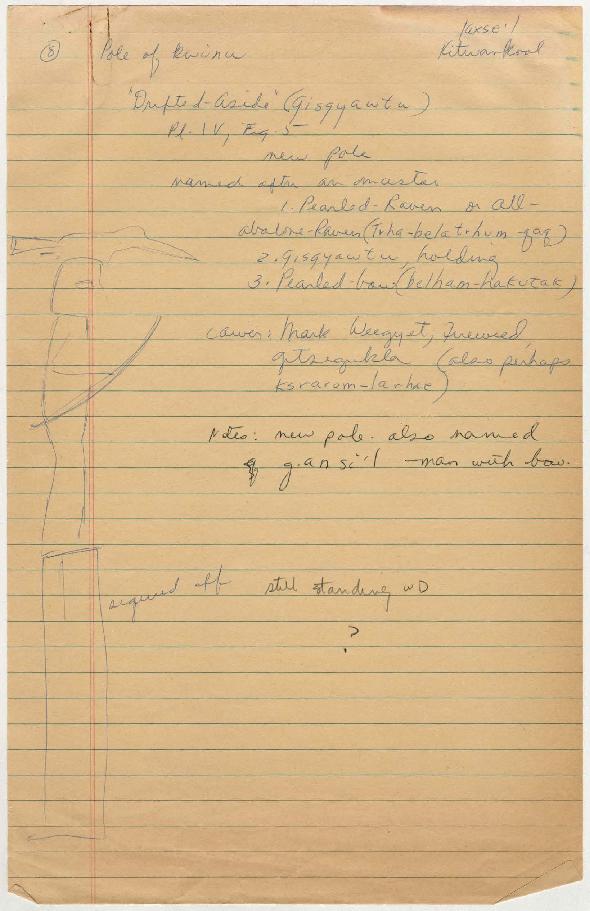 8 Pole of kwinu
laxse'l
Kitwankool
"Drifted-Aside" (Gisgyawtu)
Pl. IV, Fig. 5
new pole
named after an ancestor
1. Pearled-Raven or all-
abalone-Raven (Trha-belatrhum-qaq)
2. Gisgyawtu, holding
3. Pearled-bow (belham-hakutak)
carver: Mark Weegyet, Fireweed,
gitsegukla (also perhaps
Notes: new pole. also named
g.ansi'l - man with bow.
squared off still standing WD
?